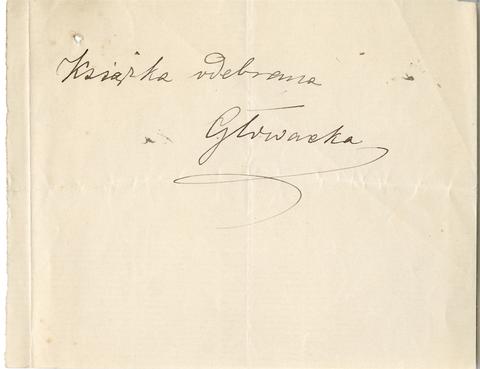 Książka odebrana
Głowacka